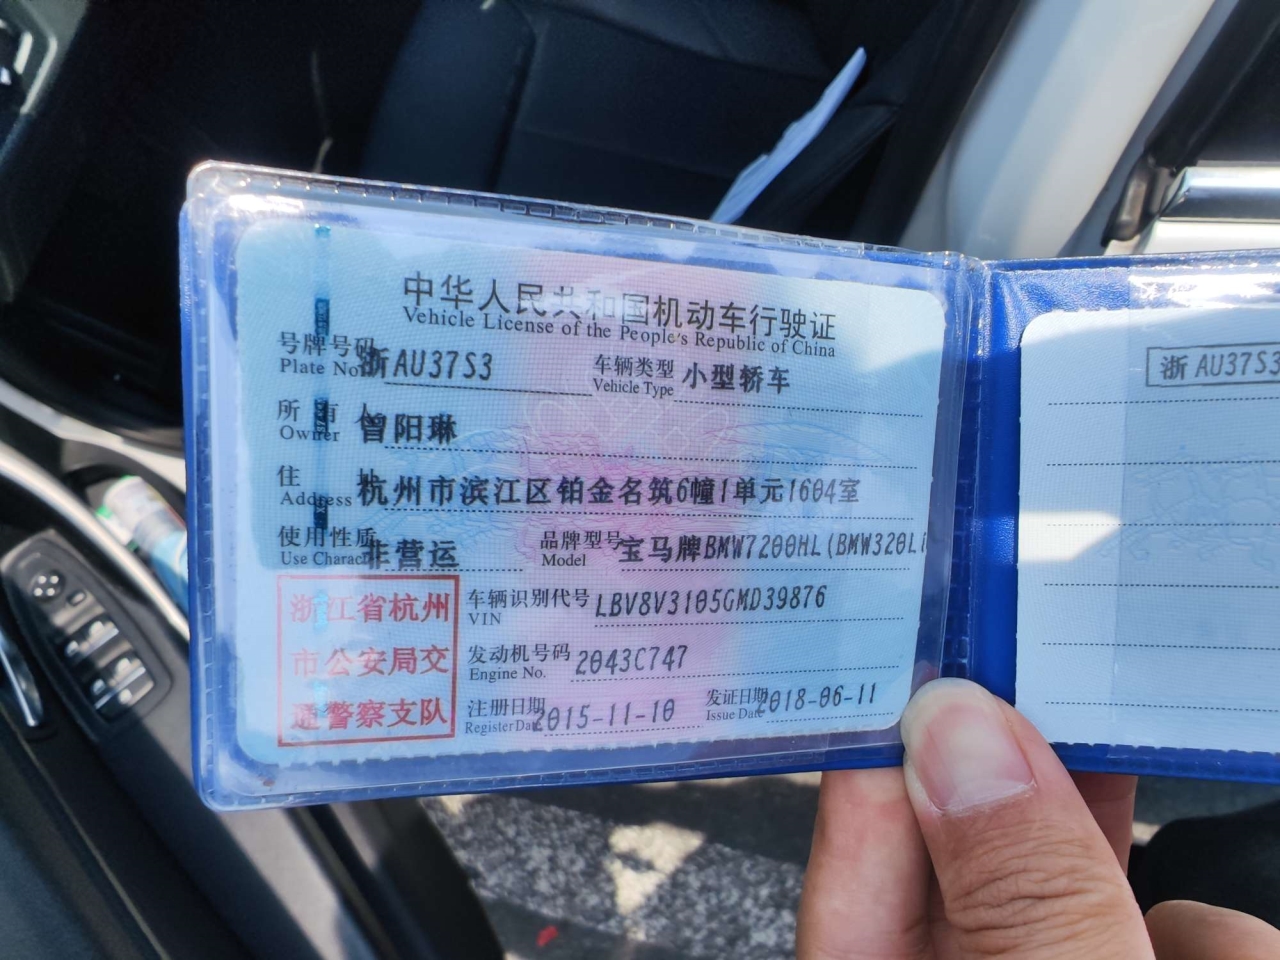 中华人民共和国机动车行驶证
Vehicle License of the People's Republic of China
号牌号码 浙AU37S3 车辆类型 小型轿车
Plate No. Vehicle Type
所有人 曾阳琳
Owner
住址 杭州市滨江区铂金名筑6幢1单元1604室
Address
使用性质 非营运 品牌型号 宝马牌BMW7200HL(BMW320Li
Use Charac Model
浙江省杭州
市公安局交
通警察支队
车辆识别代号 LBV8V3105GMD39876
VIN
发动机号码 2043C747
Engine No.
注册日期 2015-11-10 发证日期 2018-06-11
Register Date Issue Date
浙AU37S3